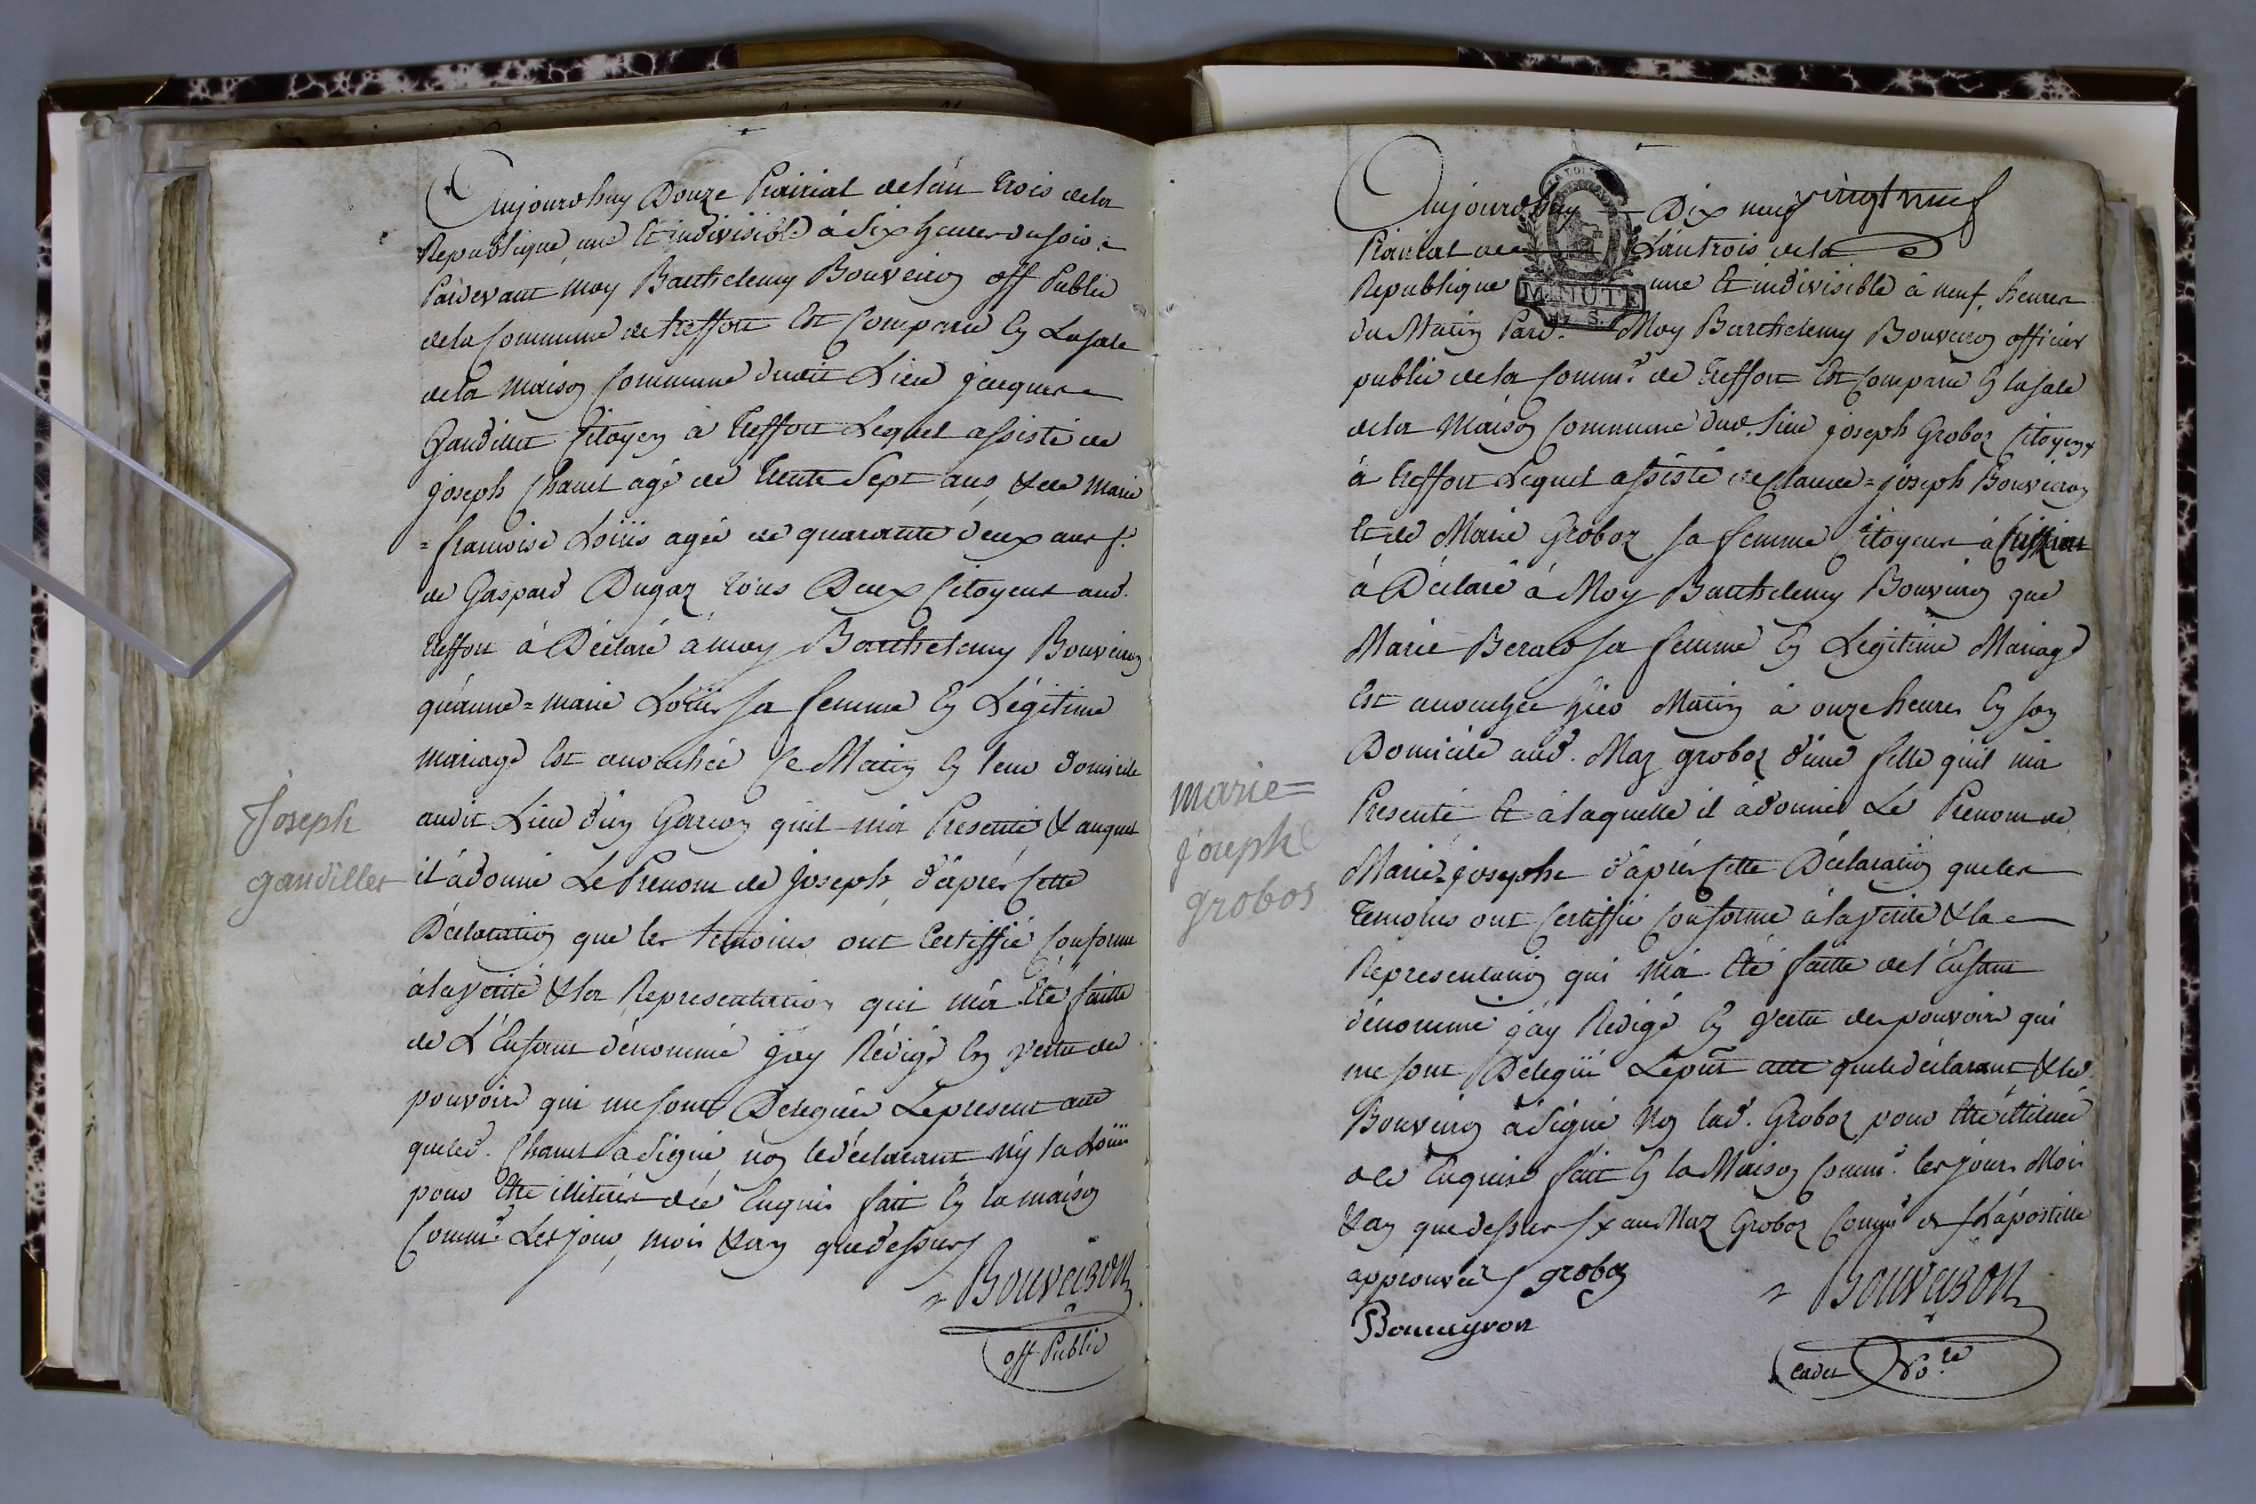 Aujourdhuy Douze Prairial de lán trois dela
Republique une Et indivisible à Six heures du soir
Pardevant moy Barthelemy Bouveiron off Public
dela Commune de treffort Est Comparu En La sale
dela maison Commune dudit Lieu jacques
Gandillet Citoyen à treffort Lequel assisté de
joseph Chanel agé de trente Sept ans, & de Marie
=francoise Loüis agée de quarante deux ans f.
de Gaspard Dugaz tous Deux Citoyens aud.
treffort à Déclaré à moy Barthelemy Bouveiron
qu'anne=marie Loüis sa femme En Légitime
mariage Est accouchée Ce Matin En leur domicile
audit Lieu d'un Garcon quil m'a Presenté, & auquel
il à donné Le Prenom de Joseph, d'après Cette
Déclaration que les temoins ont Certiffié Conforme
à la verité & la Representation qui m'a Eté faitte
de L'Enfant dénommé jáy Rédigé En vertu des
pouvoirs qui me sont Delegués Le present acte
que led. Chanel à Signé non le déclarant ny la Loüis
pour Etre illiterés de ce Enquis fait En la maison
Comm.e Les jour, mois & an que dessus
Bouveiron
off Public
Joseph
gandillet
Aujourdhuy Dix neuf vingt neuf
Prairial de Lán trois dela
Republique une Et indivisible à neuf heures
MINUTE
du Matin Pard. Moy Barthelemy Bouveiron officier
public dela Comm.e de treffort Est Comparu En la sale
dela Maison Commune dud. Lieu joseph Groboz Citoyen x
à treffort Lequel assisté de Claude=joseph Bouveiron
Et de Marie Groboz sa femme Citoyens à
à Déclaré à Moy Barthelemy Bouveiron que
Marie Beraud sa femme En Légitime Mariage
Est accouchée hier Matin à onze heures En son
Domicile aud. Maz groboz d'une fille quil m'a
Presenté Et à laquelle il à donné Le Prenom de
Marie=josephe d'après Cette Déclaration que les
temoins ont Certiffié Conforme à la verité & la
Representation qui m'a Eté faitte de l'Enfant
dénommé jáy Rédigé En vertu des pouvoirs qui
me sont Delegüé Le pnt acte que le déclarant & led.
Bouveiron à Signé Non lad. Groboz pour Etre illiterée
de ce Enquise fait En la Maison Comm.e les jour Mois
& an que dessus x au Maz Groboz Comm.e d L'apostille
approuvée groboz
Bouveyron
Bouveiron
cadet No.re
marie=
josephe
grobos